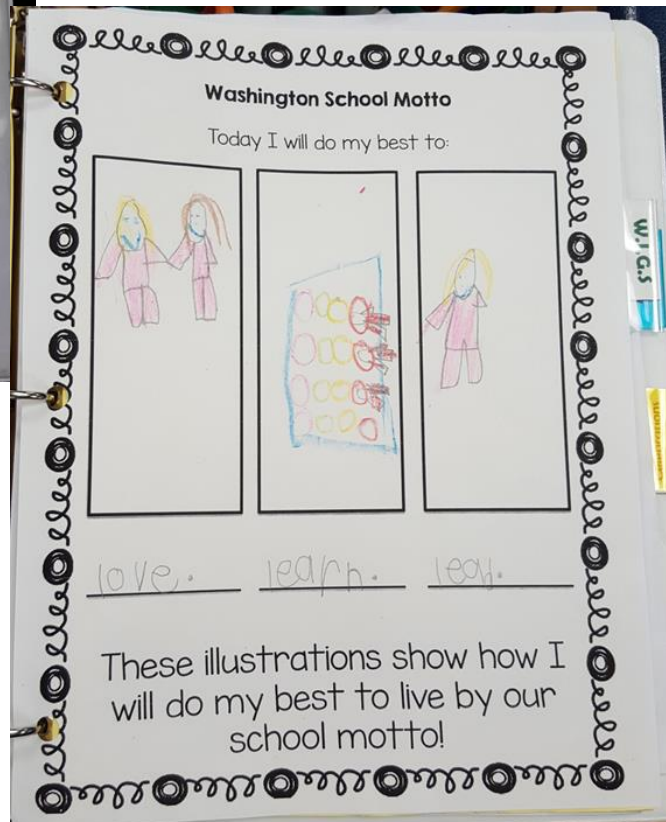 Washington School Motto
Today I will do my best to:
love. learn. lead.
These illustrations show how I
will do my best to live by our
school motto!
W.I.G.S